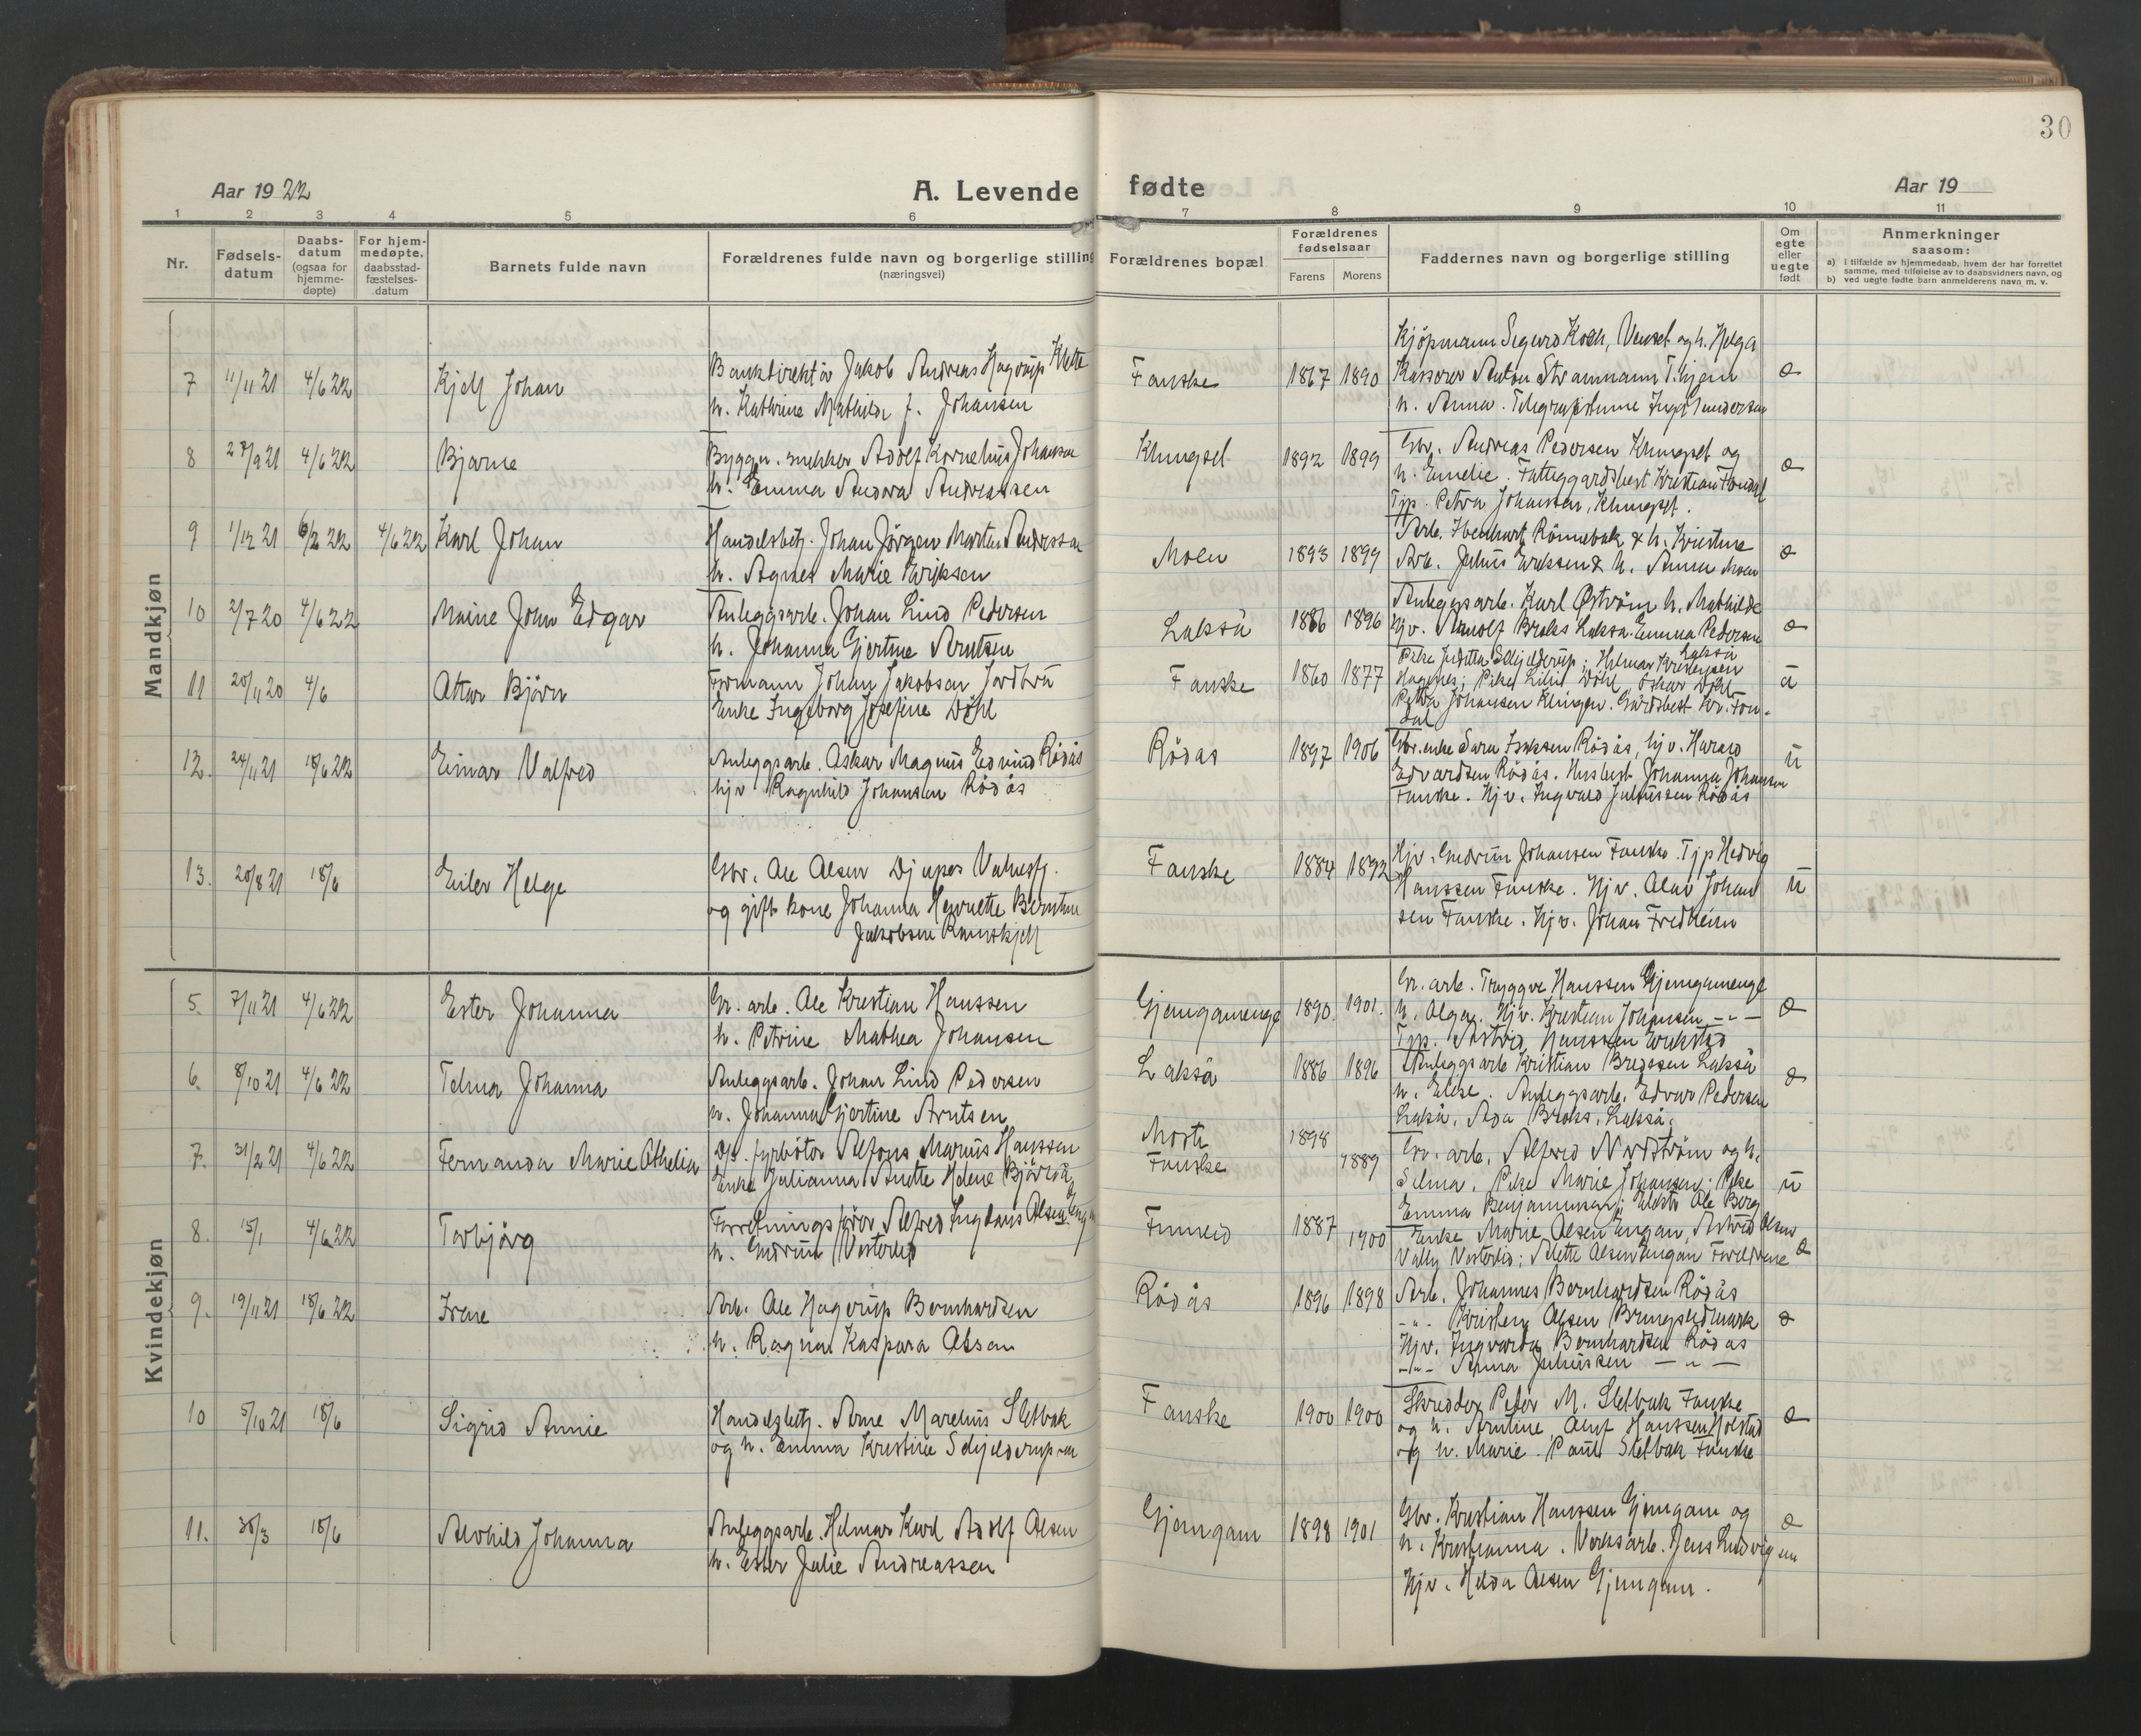 30
Aar 1922
A. Levende fødte
Aar 19
1 2 3 4 5 6 7 8 9 10 11
Nr.
Fødsels-
datum
Daabs-
datum
(ogsaa for
hjemme-
døpte)
For hjem-
medøpte,
daabsstad-
fæstelses-
datum
Barnets fulde navn
Forældrenes fulde navn og borgerlige stilling
(næringsvei)
Forældrenes bopæl
Forældrenes
fødselsaar
Farens Morens
Faddernes navn og borgerlige stilling
Om
egte
eller
uegte
født
Anmerkninger
saasom:
a) i tilfælde av hjemmedaab, hvem der har forrettet
samme, med tilføielse av to daabsvidners navn, og
b) ved uegte fødte barn anmelderens navn m. v.
Mandkjøn
7 11/11 21 4/6 22 Kjell Johan
Bankdirektör Jakob Andreas Hagrup Klette
h. Kathrine Mathilde f. Johansen
Fauske 1867 1890
Kjöpmann Sigurd Koch, Venset og h. Helga
Kasserer Anton Strammann T.hjem
h. Anna. Telegrafistinne Inga Gundersen
e
8 27/9 21 4/6 22 Bjarne
Byggn. snekker Adolf Kornelius Johansen
h. Emma Andora Andreassen
Klungset 1892 1899
Gbr. Andreas Pedersen Klungset og
h. Emelie. Fattiggardsbest Kristian Fondal
Tjp. Petra Johansen, Klungset.
e
9 1/12 21 6/2 22 4/6 22 Karl Johan
Handelsbetj. Johan Jörgen Martin Andressen
h. Agnes Marie Eriksen
Moen 1893 1899
Arb. Ebenhart Rönnebak & h. Kristine
Arb. Julius Eriksen & h. Anna Moen
e
10 2/7 20 4/6 22 Maine John Edgar
Anleggsarb. Johan Lind Pedersen
h. Johanna Gjertine Arntsen
Lakså 1886 1896
Anleggsarb. Karl Öström h. Mathilde
Hjv. Arnolf Broks Laksa. Emma Pedersen
Lakså
e
11 20/11 20 4/6 Ottar Björn
Formann Johan Jakobsen Jordbrü
Enke Ingeborg Josefine Döhl
Fauske 1860 1877
Pike Juditta Schjelderup; Helmar Kristensen
Hagenes; Pike Lilli Döhl, Oskar Döhl
Petra Johansen Klungs. Gårdsbest Kr. Fon-
dal
u
12. 24/11 21 18/6 22 Einar Valfred
Anleggsarb. Oskar Magnus Edvind Rödås
hjv Ragnhild Johansen Rödås
Rödas 1897 1906
Gbr.enke Sara Isaksen Rödås, hjv. Harald
Edvardsen Rödås. Husbest. Johanna Johansen
Fauske. Hjv. Ingvald Juliussen Rödås
u
13. 20/8 21 18/6 Eiler Helge
Gbr. Ole Olsen Djupos Valnesfj.
og gift kone Johanna Henriette Berntine
Jakobsen Ramskjell
Fauske 1884 1892
Hjv. Gudrun Johansen Fauske. Tjp Hedvig
Hanssen Fauske. Hjv. Olav Johan
sen Fauske. Hjv. Johan Fredheim
u
Kvindekjøn
5. 7/11 21 4/6 22 Ester Johanna
Gr. arb. Ole Kristian Hanssen
h. Petrine Mathea Johansen
Gjemgamenge 1890. 1901.
Gr. arb. Tryggve Hanssen Gjemgamenge
h. Olga. Hjv. Kristian Johansen - " -
Tjp. Astrid Hanssen Erikstad
e
6. 8/10 21 4/6 22 Telma Johanna
Anleggsarb. Johan Lind Pedersen
h. Johanna Gjertine Arntsen
Lakså 1886 1896
Anleggsarb Kristian Bredesen Lakså
h. Elise. Anleggsarb. Edvar Pedersen
Lakså. Ada Broks, Lakså.
e
7. 31/2 21 4/6 22 Fernanda Marie Othelia
Ds. fyrbötor Alfons Marius Hanssen
Enke Julianna Anette Helene Björkå
Mosti 1898
Fauske 1889
Gr. arb. Alfred Nordström og h.
Selma. Pike Marie Johansen; Pike
Emma Benjaminsen; Elektr Ole Berg
u
8. 15/1 4/6 22 Torbjörg
Forretningsförer Alfred Ingdans Olsen Engan
h. Gudrun Vesterlid
Funneid 1887 1900
Enke Marie Olsen Engan, Astrid Olsen
Vally Vesterlid; Alette Olsen Engan Foreldrene
e
9. 19/11 21 18/6 22 Irene
Arb. Ole Hagerup Bernhardsen
h. Ragna Kaspara Olsen
Rödås 1896 1898
Arb. Johannes Bernhardsen Rödås
- " - Kristen Olsen Bringslidmark
Hjv. Ingvarda Bernhardsen Rödås
- " - Anna Juliussen - " -
e
10 5/10 21 18/6 Sigrid Annie
Handelsbetj. Arne Marelius Sletbak
og h. Emma Kristine Schjelderup
Fauske 1900 1900
Skredder Peder M. Sletbak Fauske
og h. Arntine, Oluf Hanssen Holstad
og h. Marie. Paul Sletbak Fauske
e
11. 30/3 18/6 Alvhild Johanna
Anleggsarb. Helmar Karl Adolf Olsen
h. Ester Julie Andreassen
Gjemgam 1898 1901
Gbr. Kristian Hanssen Gjemgam og
h. Kristianna. Verksarb. Jens Ludvigsen
Hjv. Helda Olsen Gjemgam.
e